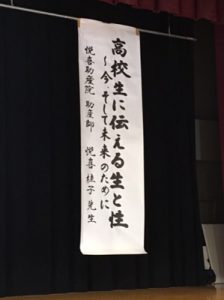 高校生に伝える生と性
～今、そして未来のために
悦喜助産院 助産師 悦喜 桂子 先生